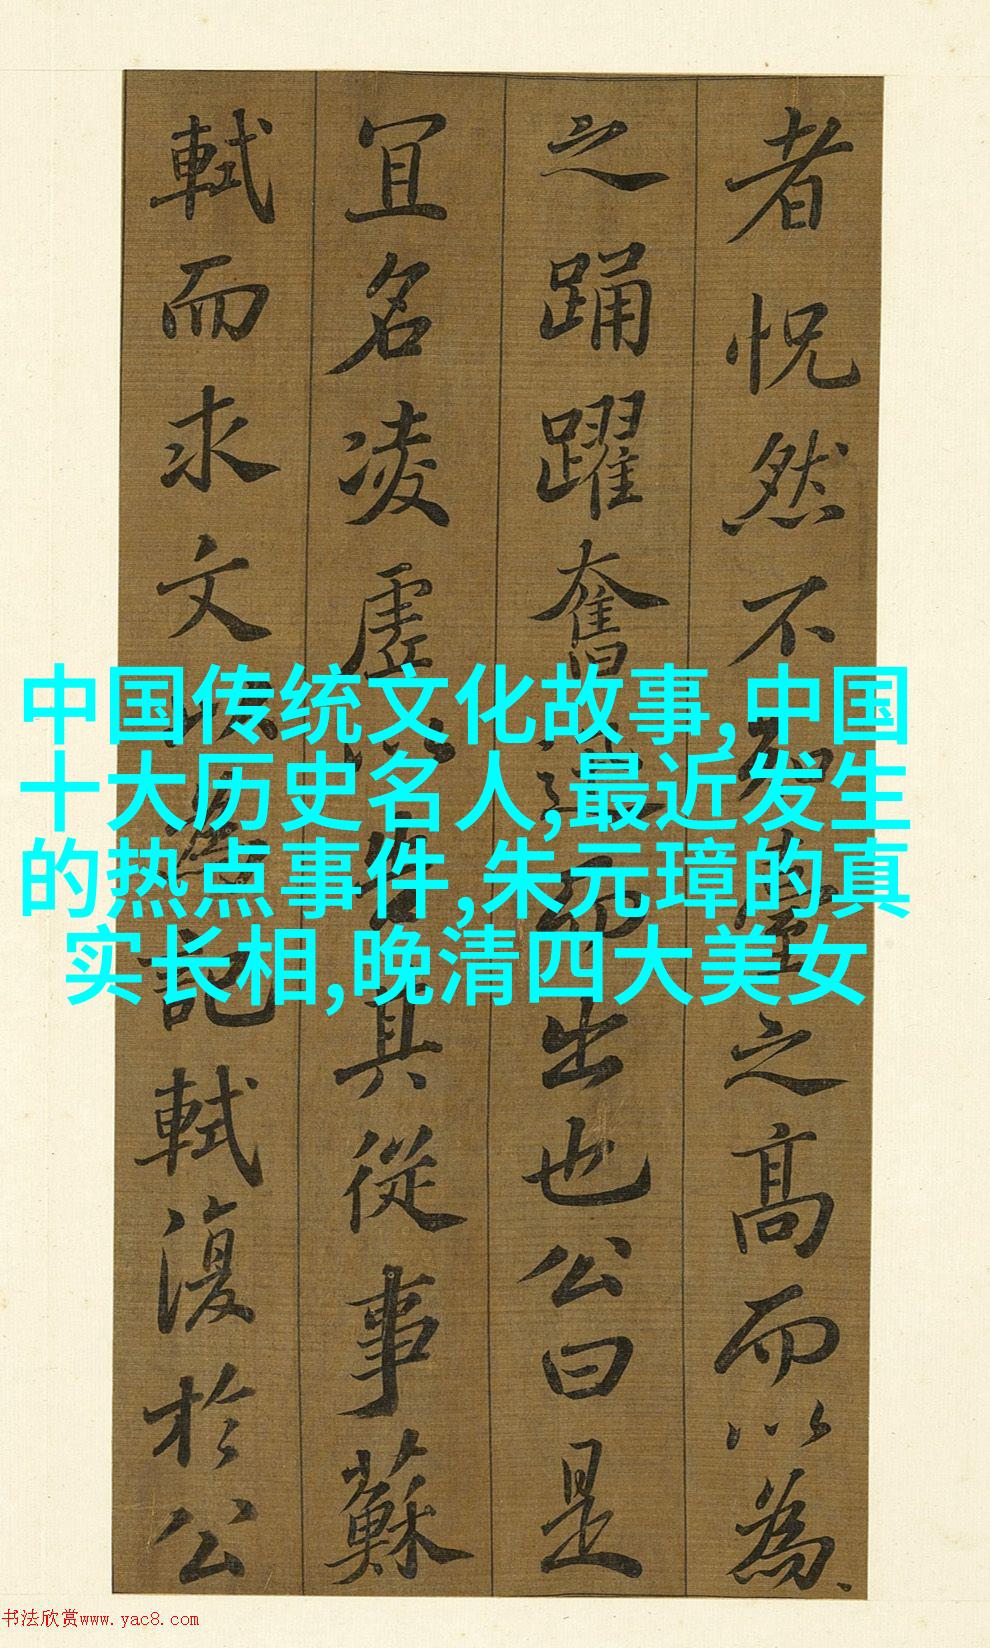 者怳然不知臺之高而以為
之踊躍奮迅而出也公曰是
宜名凌虛以告其從事蘇
軾而求文以為記軾復於公
中国传统文化故事,中国
十大历史名人,最近发生
的热点事件,朱元璋的真
实长相,晚清四大美女
书法欣赏www.yac8.com